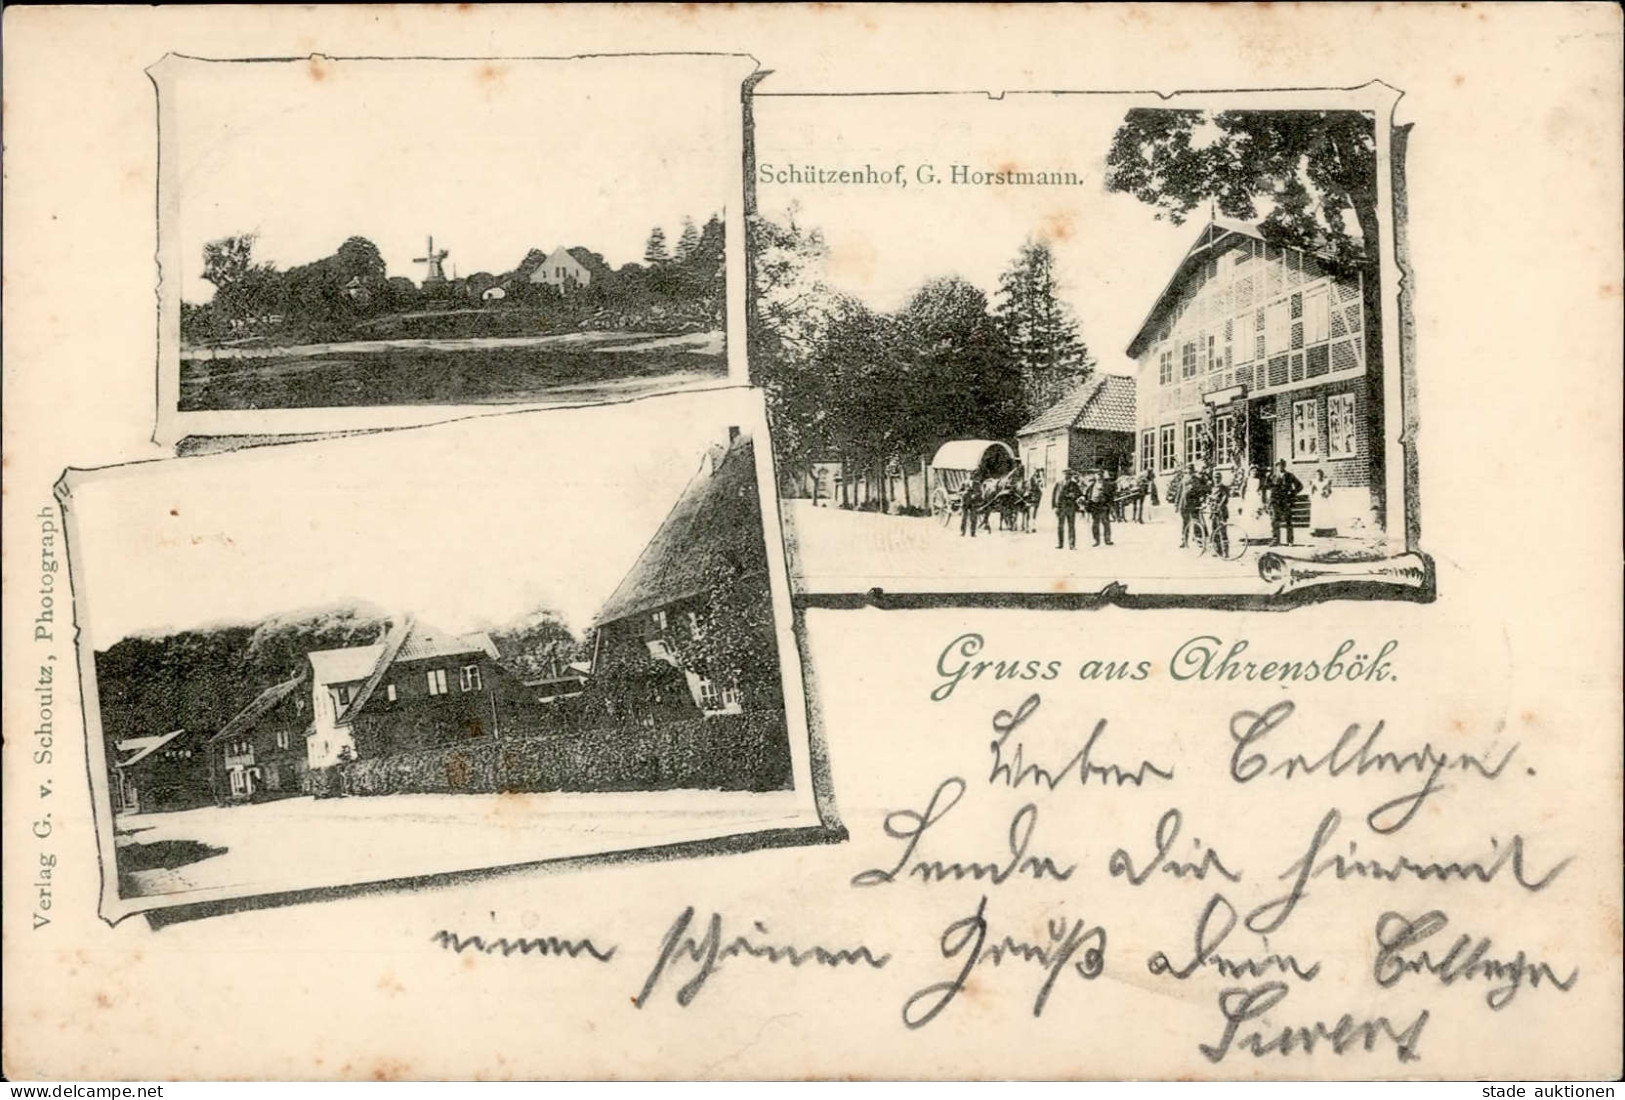 Schützenhof, G. Horstmann.
Verlag G. v. Schoultz, Photograph
Gruss aus Ahrensbök.
Lieber College.
Sende dir hiermit
einen schönen Gruß dein College
Siwert
the-collection.net
stade auktionen